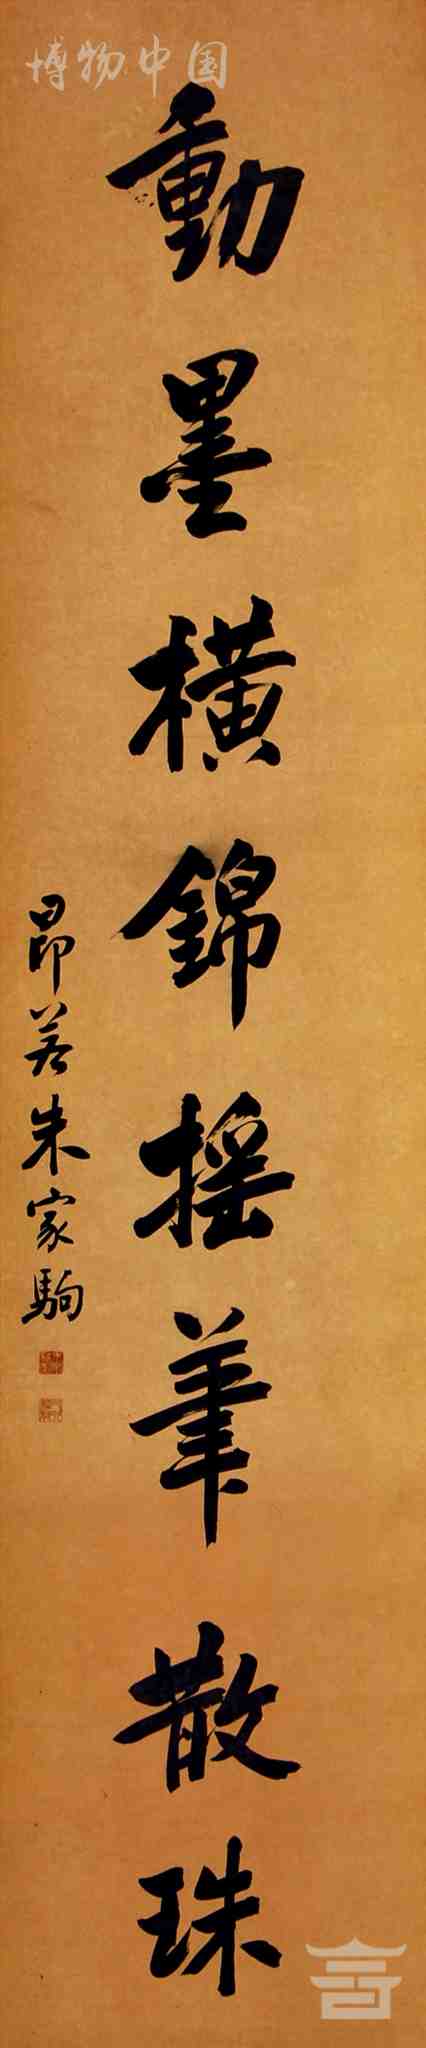 博物中国
動墨橫錦摇筆散珠
昂若朱家駒